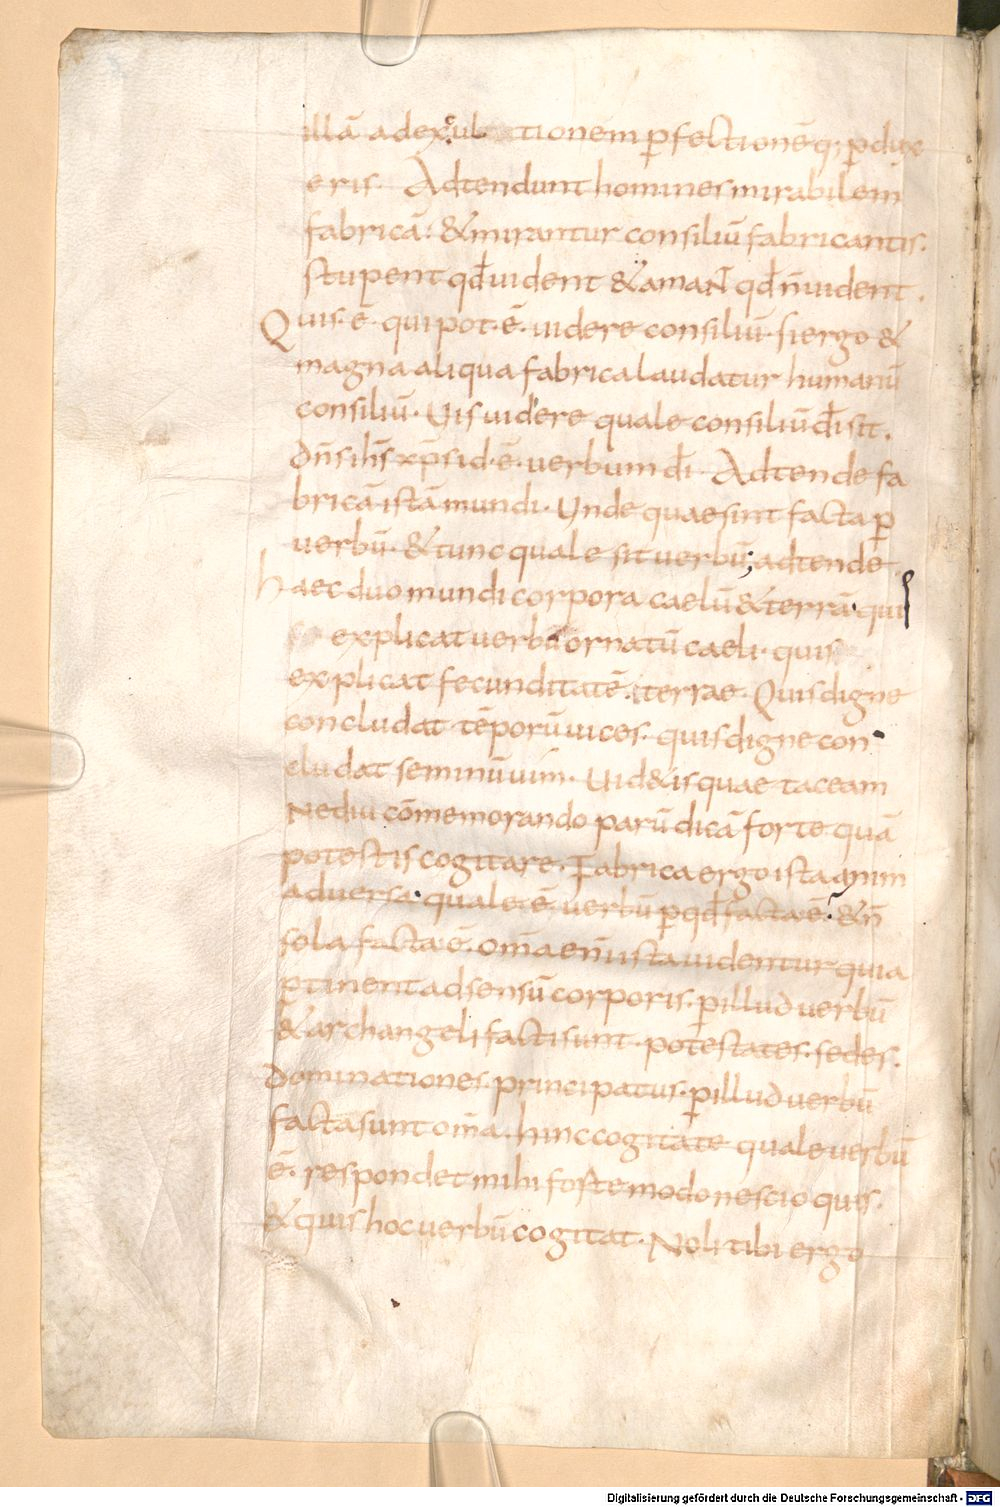 illā ad ex ul tionem ꝑfectionēq; ꝑdux
eris. Adtendunt homines mirabilem
fabricā: & mirantur consiliū fabricantis.
stupent qđ uident & amaɴt qđ n̄ uident.
Quis ē qui pot·ē· uidere consiliū· si ergo &
magna aliqua fabrica laudatur humanū
consiliū· Uis uidere quale consiliū dī sit.
dn̄s ih̄s xp̄s id·ē· uerbum dī· Adtende fa
bricā istā mundi· Unde quae sint facta ꝑ
uerbū· & tunc quale sit uerbū; adtende
haec duo mundi corpora caelū & terrā· quis
explicat uerbū ornatū caeli· quis
explicat fecunditatē terrae· Quis digne
concludat tēporū uices· quis digne con
cludat seminū uim· Uid&is quae taceam
Ne diu cōmemorando parū dicā forte quā
potestis cogitare· Fabrica ergo ista anim
aduersa· quale ē uerbū ꝑ qđ facta ē· & n̄
sola facta ē· om̄a en̄ ista uidentur quia
ꝑtinent ad sensū corporis· ꝑ illud uerbū
& archangeli facti sunt· potestates· sedes·
dominationes· principatus· ꝑ illud uerbū
facta sunt om̄a· hinc cogitate quale uerbū
ē· respondet mihi foste modo nescio quis·
& quis hoc uerbū cogitat· Noli tibi ergo
Digitalisierung gefördert durch die Deutsche Forschungsgemeinschaft - DFG